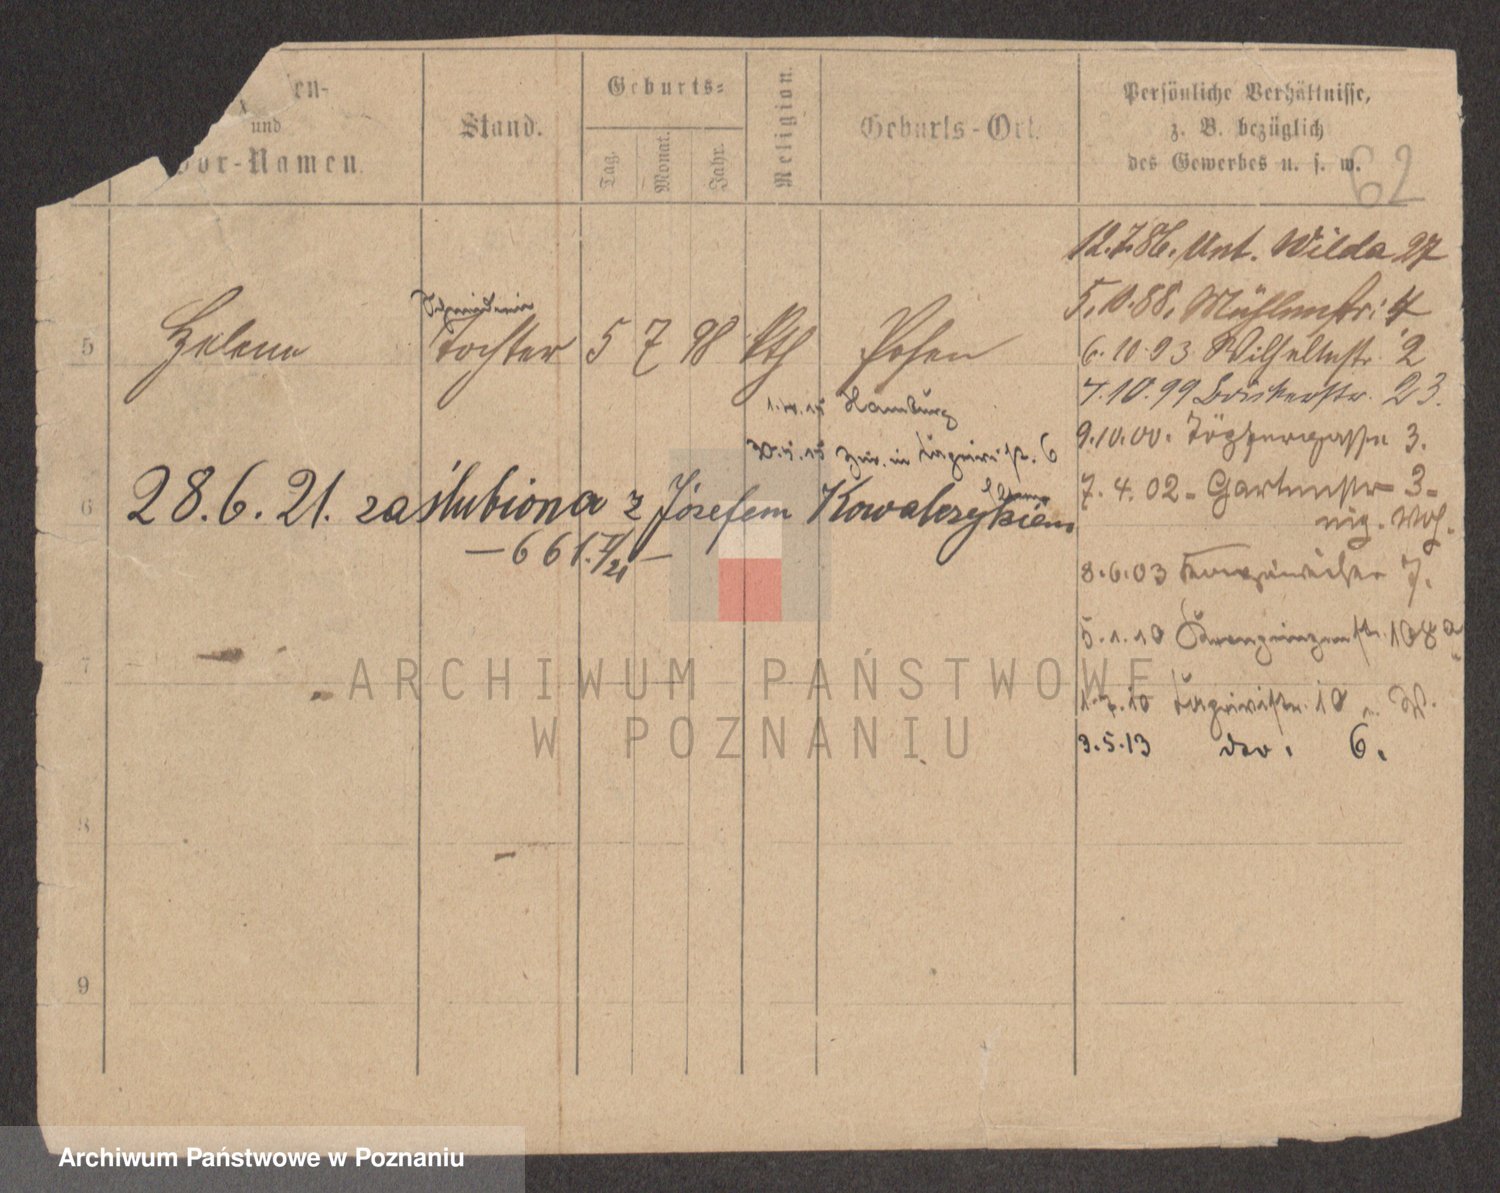 en-
und
Vor-Namen.
Stand.
Geburts-
Tag.
Monat.
Jahr.
Religion.
Geburts-Ort.
Persönliche Verhältnisse,
z. B. bezüglich
des Gewerbes u. s. w.
62
12.7.86. Unt. Wilda 27
5.10.88. Mühlenstr: 4
Schneiderin
5 Helena Tochter 5 7 98 kth Posen
6.10.93 Wilhelmstr. 2
7.10.99 23.
1. 15 Hamburg
9.10.00. 3.
30. 15 zur. in 6
7.4.02. Gartenstr 3.
Wg.
6 28.6.21. zaślubiona z Józefem Kowalczykiem
— 661. /21 —
8.6.03 7.
5.1.10 Kronprinzenstr. a
7
1.7.10 10 W.
3.5.13 6.
8
9
ARCHIWUM PAŃSTWOWE
W POZNANIU
Archiwum Państwowe w Poznaniu